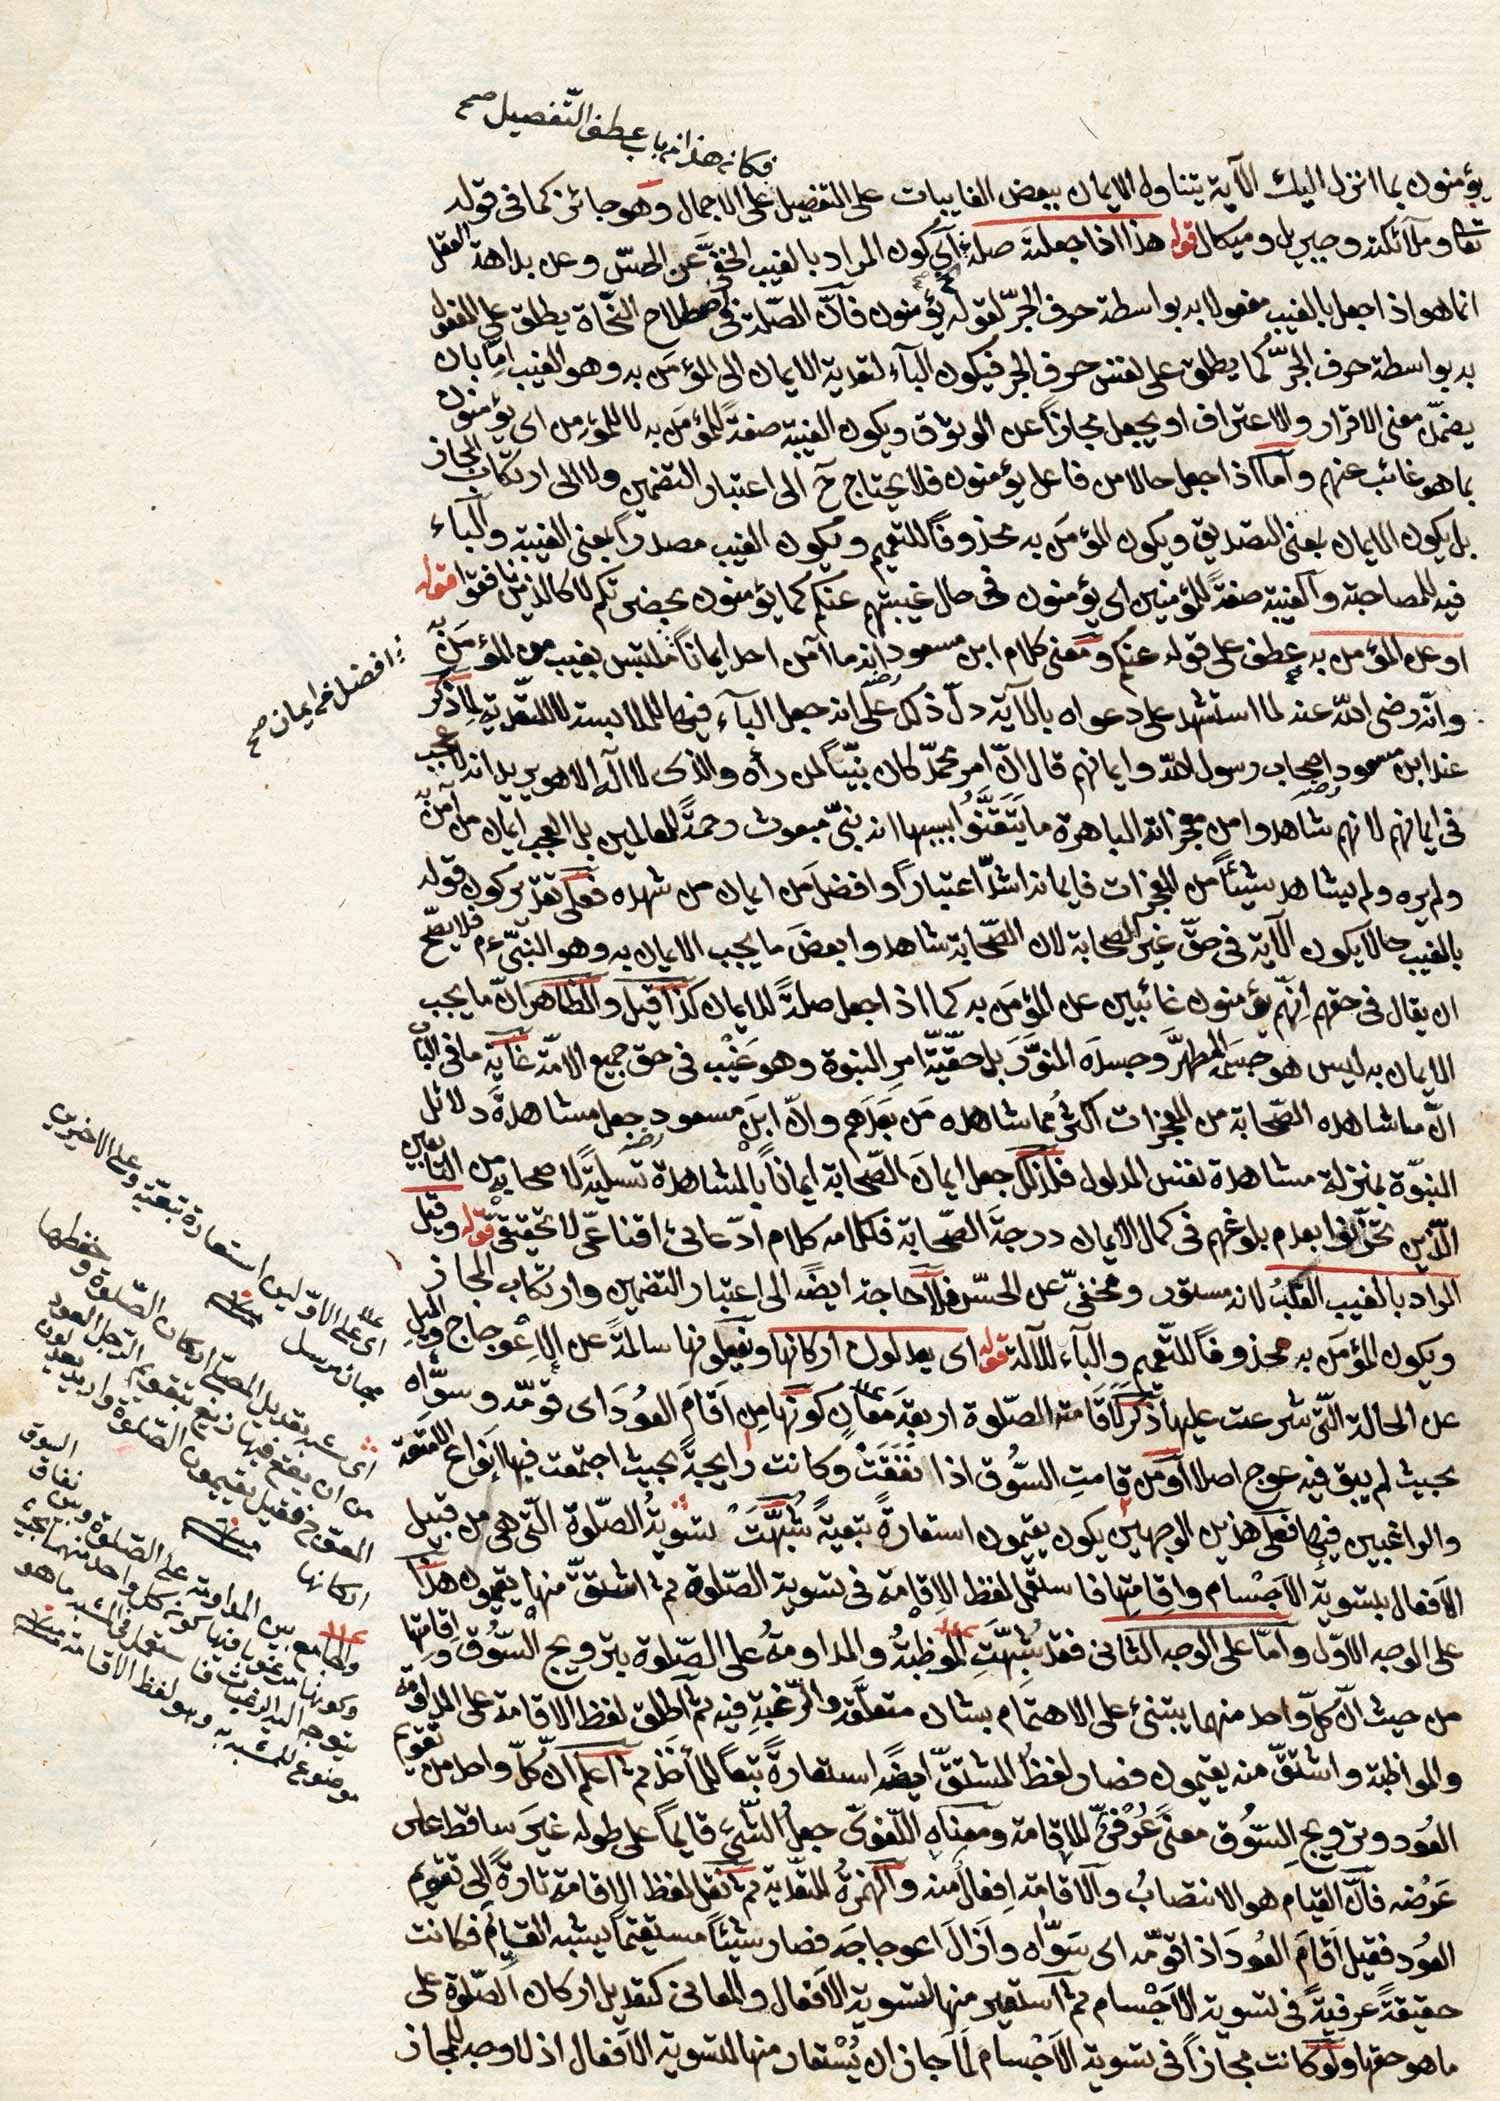 فكانه هذا من باب عطف التفصيل صح
يؤمنون بما انزل اليك الآية يتناول الايمان ببعض الغايبات على التفصيل على الاجمال وهو جائز كما في قوله
تعالى وملآئكته وجبريل وميكال قوله هذا اذا جعلته صلة اى كون المراد بالغيب الخفىّ عن الحسّ وعن بداهة العقل
انما هو اذا جعل بالغيب مفعولا به بواسطة حرف الجرّ لقوله يؤمنون فانّ الصّلة فى اصطلاح النّحاة يطلق على المفعول
به بواسطة حرف الجرّ كما يطلق على نفس حرف الجر فيكون البآء لتعدية الايمان الى المؤمَن به وهو الغيب امّا بان
يضمّن معنى الاقرار والاعتراف او يجعل مجازاً عن الوثوق ويكون الغيبة صفةً للمؤمَن به لا للمؤمِن اى يؤمنون
بما هو غائب عنهم وامّا اذا جعل حالا من فاعل يؤمنون فلا يحتاج ح الى اعتبار التضمين ولا الى ارتكاب المجاز
بل يكون الايمان بمعنى التصديق ويكون المؤمَن به محذوفاً للتعميم ويكون الغيب مصدراً بمعنى الغيبة والبآء
فيه للمصاحبة والغيبة صفةً للمؤمنين اى يؤمنون فى حال غيبتهم عنكم كما يؤمنون بحضرتكم لا كالذين نافقوا قوله
او عن المؤمن به عطف على قوله عنكم ومعنى كلام ابن مسعود رضه انه ما آمن احد ايماناً ملتبس بغيب من المؤمَن به
افضل من ايمان صح
وانّه رضى اللّه عنه لما استشهد على دعواه بالآية دلّ ذلك على انه جعل البآء فيها للملابسة لا للتعدية لما ذكر
عند ابن مسعود اصحاب رسول اللّه وايمانهم قال انّ امر محمّد كان بيّناً لمن رأه والذى لا اله الا هو يريد انه لا عجب
فى ايمانهم لانهم شاهدوا من معجزاته الباهرة ما يتقَّنوا بسببها انه نبىّ مبعوث رحمةً للعالمين بل العجب ايمان من آمن به
ولم يره ولم يشاهد شيئاً من المعجزات فايمانه اشدّ اعتباراً وافضل من ايمان من شهده فعلى تقدير كون قوله
بالغيب حالا يكون الآية فى حقّ غير الصحابة لان الصّحابة شاهدوا بعضَ ما يجب الايمان به وهو النبىّ ءم فلا يصحّ
ان يقال فى حقهم انّهم يؤمنون غائبين عن المؤمَن به كما اذا جعل صلةً للايمان كذا قيل والظاهر انّ ما يجب
الايمان به ليس هو جسمَه المطهرَّ وجسدَه المنوَّرَ بل حقّيّة امر النبوة وهو غَيْب فى حق جميع الامّة غاية ما فى الباب
انّ ما شاهده الصّحابة من المعجزات اكثر مما شاهده مَن بَعدَهم وانّ ابن مسعود رضه جعل مشاهدة دلائل
النبوّة بمنزلة مشاهدة نفس المدلول فلذلك جعل ايمان الصّحابة ايماناً بالمشاهدة تسليةً لاصحابه من التابعين
الّذين تحزّنوا بعدم بلوغهم فى كمال الايمان درجةَ الصّحابة فكلامه كلام ادّعائى اقناعىّ لا تحقيقى قوله وقيل
المراد بالغيب القلب لانه مستور ومخفىّ عن الحسّ فلا حاجة ايضًا الى اعتبار التضمين وارتكاب المجاز
ويكون المؤمَن به محذوفاً للتعميم والبآء للآلة قوله اى يعدلون اركانها ويفعلونها سالمةً عن الاعوجاج والميل
عن الحالة التّى شرعت عليها ذكر لاقامة الصّلوة اربعة معان كونها من اقامَ العودَ اى قوّمه وسوّاه
بحيث لم يبق فيه عوج اصلا او من قامتِ السُّوق اذا نفَقَتْ وكانت رايجةً بحيث اجتمعت فيها انواع الامتعة
والراغبين فيها فعلى هذين الوجهين يكون يقيمون استعارةً تبعيةً شُبّهَتْ تسويةُ الصّلوة التّى هى من قبيل
الافعال بتسوية الاَجْسام واقامتها فاستعمل لفظ الاقامة فى تسوية الصّلوة ثم اشتقّ منها يقيمون هذا
على الوجه الاوّل وامّا على الوجه الثانى فقد شُبِّهَتِ المواظبةُ والمداومةُ على الصّلوة بترويج السّوق واقامتها
من حيث انّ كلّ واحد منهما يبتنى على الاهتمام بشان متعلّقه والرّغبةِ فيه ثم اطلق لفظ الاقامة على المداومة
والمواظبة واشتقّ منه يقيمون فصار لفظ المشتقّ ايضًا استعارةً تبعاً للمأخذ ثم اعلم انّ كلّ واحد من تقويم
العود وترويج السُّوق معنًى عُرْفىٌّ للاقامة ومعناه اللّغوىّ جعلُ الشّئ قايماً على طوله غيرَ ساقط على
عَرْضه فانّ القيام هو الانتصابُ والاقامة اِفعالٌ منه والهمزةُ للتعدية ثم نُقل لفظ الاقامة تارةً الى تقويم
العود فقيل اَقامَ العودَ اذا قوّمه اى سَوّاه وازالَ اعوجاجَه فصار شيئاً مستقيماً يشبه القايمَ فكانت
حقيقةً عرفيةً فى تسوية الاَجْسام ثم استعير منها لتسوية الافعال والمعانى كتعديل اركان الصّلوة على
ما هو حقها ولو كانت مجازاً فى تسوية الاَجْسام لَمَا جاز ان يُسْتعار منها لتسوية الافعال اذ لا وجه للمجاز
اى على الاوّلين استعارة تبعيّة وعلى الاخيرين
مجاز مرسل
اى شبه تعديل المصلّى اركان الصّلوة وحفظها
من ان يقع فيها زيغ بتقويم الرّجل العود
المعوّج فقيل يقيمون الصّلوة واريد يعدلون
اركانها
والجامع بين المداومة على الصّلوة وبين نفاق السوق
وكونها مرغوبا فيها كون كل واحد منهما بحيث
يتوجه اليه الرغبات فاستعمل فى المشبه ما هو
موضوع للمشبه به وهو لفظ الاقامة